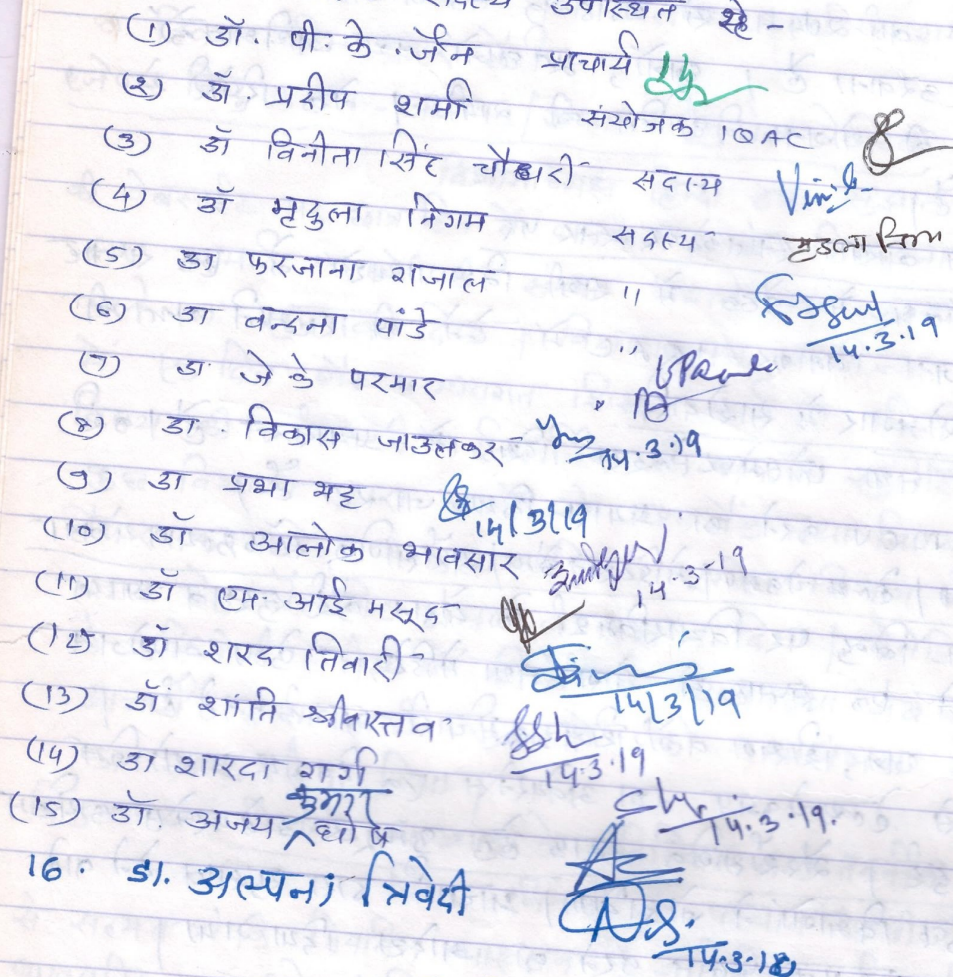 सदस्य उपस्थित रहे -
(1) डॉ. पी. के. जैन प्राचार्य
(2) डॉ. प्रदीप शर्मा संयोजक IQAC
(3) डॉ विनीता सिंह चौधरी सदस्य
(4) डॉ मृदुला निगम सदस्य मृदुला निगम
(5) डा फरजाना गजाल "
14.3.19
(6) डा वन्दना पांडे "
(7) डा. जे के परमार "
(8) डा. विकास जाउलकर - 14.3.19
(9) डा प्रभा भट्ट 14/3/19
(10) डॉ आलोक भावसार 14-3-19
(11) डॉ एम. आई मसूद
(12) डॉ शरद तिवारी 14/3/19
(13) डॉ शांति श्रीवास्तव 14.3.19
(14) डा शारदा गर्ग 14.3.19.
(15) डॉ. अजय कुमार घोष
16. डा. अल्पना त्रिवेदी 14.3.19